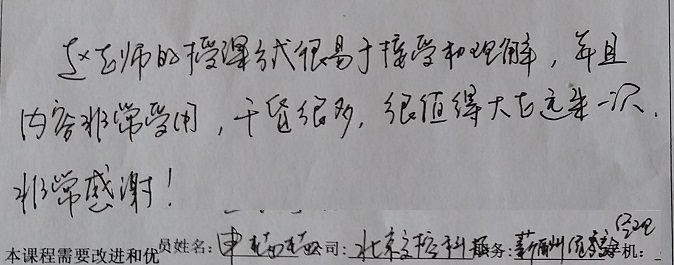 赵老师的授课方式很易于接受和理解，并且
内容非常受用，干货很多，很值得大老远来一次.
非常感谢！
本课程需要改进和优员姓名：申 司：北京交控科技 务：薪酬 经理 机：